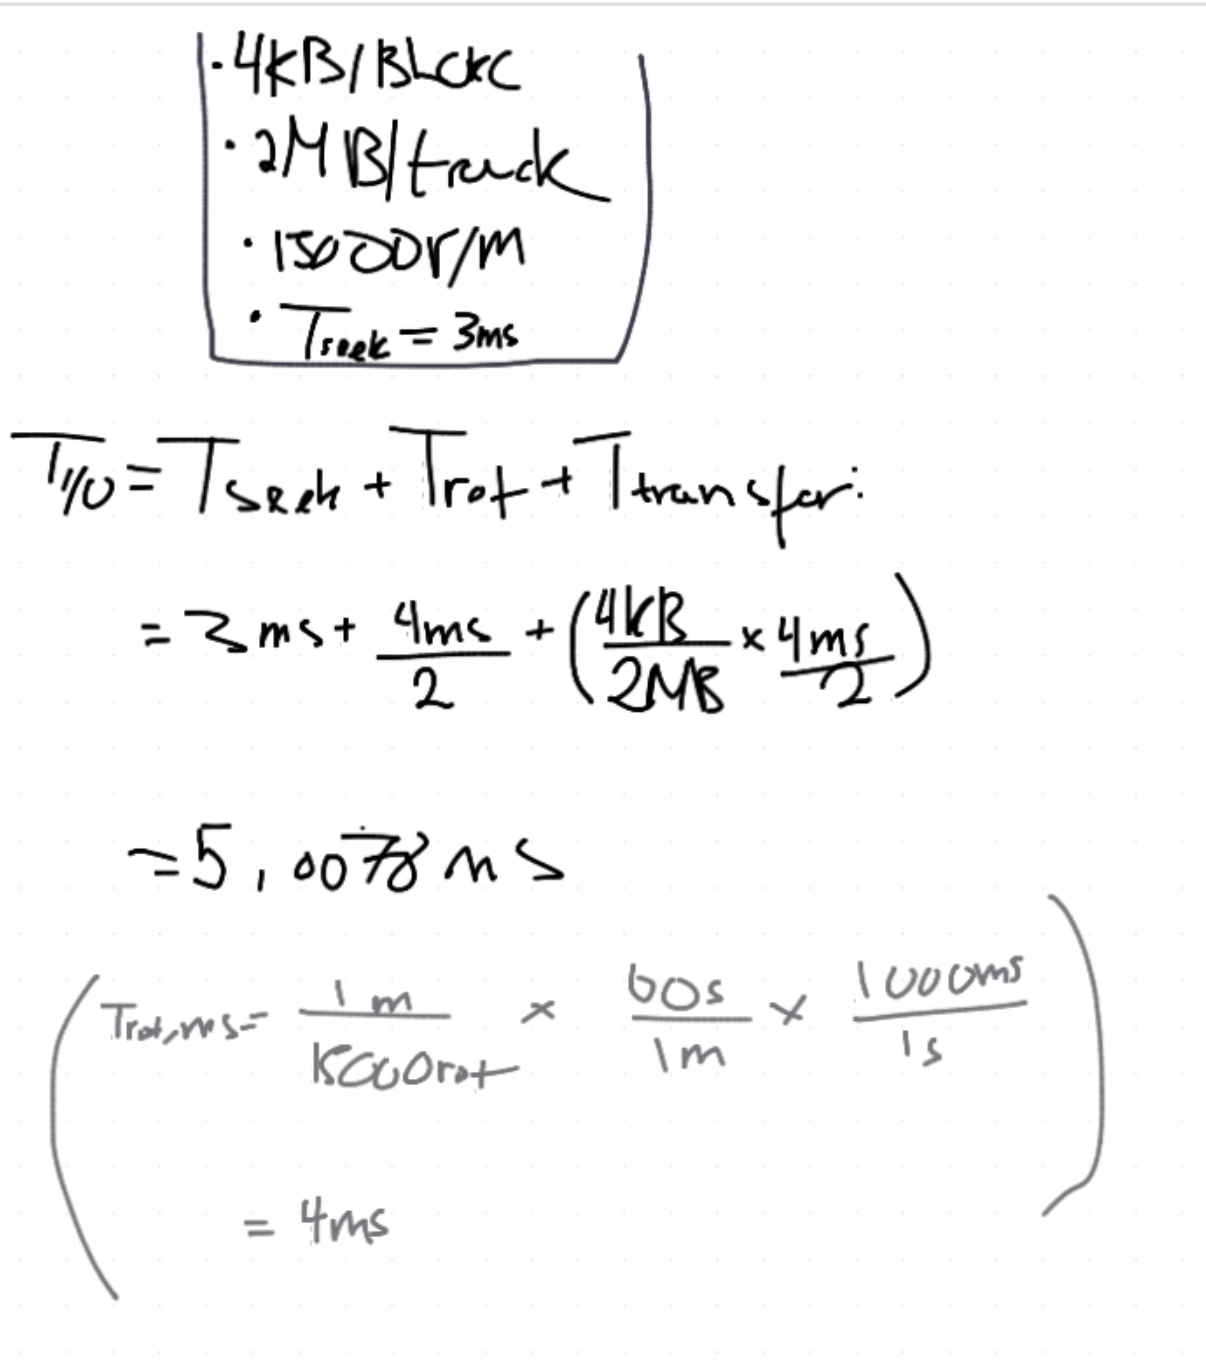 · 4KB/Block
· 2MB/track
· 15000r/M
· Tseek = 3ms
TI/O = Tseek + Trot + Ttransfer.
= 3ms + 4ms/2 + (4KB/2MB x 4ms/2)
= 5,0078 ms
(Trot,ms = 1m/15000rot x 60s/1m x 1000ms/1s
= 4ms)